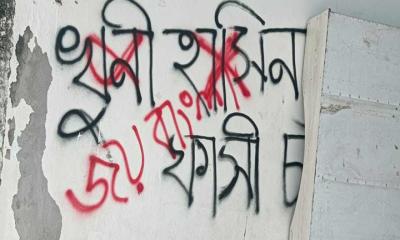 খুনী হাসিন
জয় বাংলা
ফাসী চ